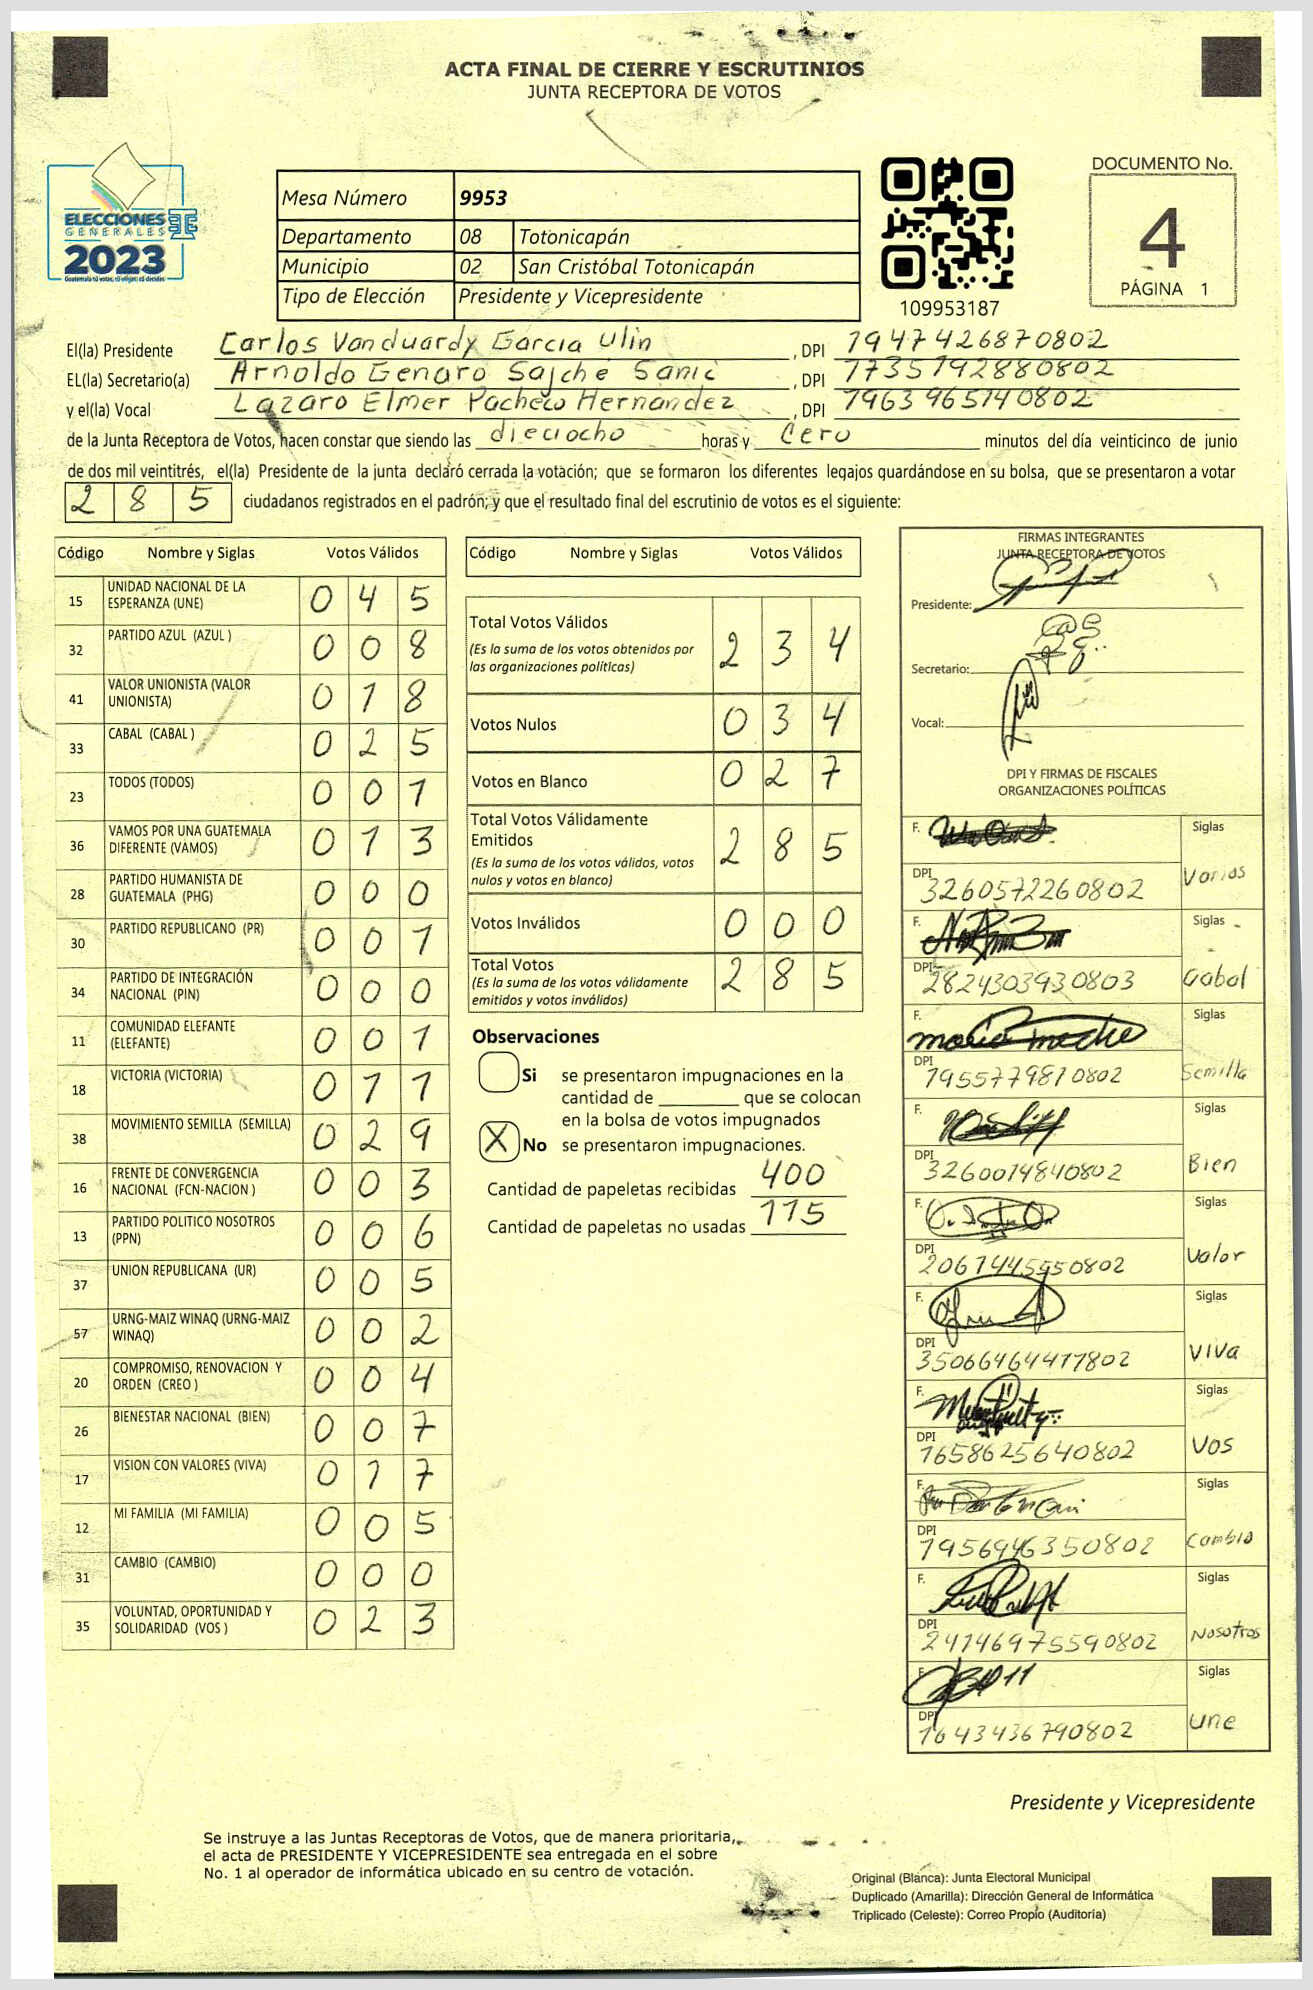 ACTA FINAL DE CIERRE Y ESCRUTINIOS
JUNTA RECEPTORA DE VOTOS
ELECCIONES
GENERALES
2023
Guatemala tú votas, tú eliges, tú decides
Mesa Número 9953
Departamento 08 Totonicapán
Municipio 02 San Cristóbal Totonicapán
Tipo de Elección Presidente y Vicepresidente
109953187
DOCUMENTO No.
4
PÁGINA 1
El(la) Presidente Carlos Vanduardy Garcia Ulin , DPI 1947426870802
EL(la) Secretario(a) Arnoldo Genaro Sajche Sanic , DPI 1735192880802
y el(la) Vocal Lazaro Elmer Pacheco Hernandez , DPI 1963965140802
de la Junta Receptora de Votos, hacen constar que siendo las dieciocho horas y Cero minutos del día veinticinco de junio
de dos mil veintitrés, el(la) Presidente de la junta declaró cerrada la votación; que se formaron los diferentes legajos guardándose en su bolsa, que se presentaron a votar
2 8 5 ciudadanos registrados en el padrón; y que el resultado final del escrutinio de votos es el siguiente:
Código Nombre y Siglas Votos Válidos
15 UNIDAD NACIONAL DE LA ESPERANZA (UNE) 0 4 5
32 PARTIDO AZUL (AZUL ) 0 0 8
41 VALOR UNIONISTA (VALOR UNIONISTA) 0 1 8
33 CABAL (CABAL ) 0 2 5
23 TODOS (TODOS) 0 0 1
36 VAMOS POR UNA GUATEMALA DIFERENTE (VAMOS) 0 1 3
28 PARTIDO HUMANISTA DE GUATEMALA (PHG) 0 0 0
30 PARTIDO REPUBLICANO (PR) 0 0 1
34 PARTIDO DE INTEGRACIÓN NACIONAL (PIN) 0 0 0
11 COMUNIDAD ELEFANTE (ELEFANTE) 0 0 1
18 VICTORIA (VICTORIA) 0 1 1
38 MOVIMIENTO SEMILLA (SEMILLA) 0 2 9
16 FRENTE DE CONVERGENCIA NACIONAL (FCN-NACION ) 0 0 3
13 PARTIDO POLITICO NOSOTROS (PPN) 0 0 6
37 UNION REPUBLICANA (UR) 0 0 5
57 URNG-MAIZ WINAQ (URNG-MAIZ WINAQ) 0 0 2
20 COMPROMISO, RENOVACION Y ORDEN (CREO ) 0 0 4
26 BIENESTAR NACIONAL (BIEN) 0 0 7
17 VISION CON VALORES (VIVA) 0 1 7
12 MI FAMILIA (MI FAMILIA) 0 0 5
31 CAMBIO (CAMBIO) 0 0 0
35 VOLUNTAD, OPORTUNIDAD Y SOLIDARIDAD (VOS ) 0 2 3
Código Nombre y Siglas Votos Válidos
Total Votos Válidos 2 3 4
(Es la suma de los votos obtenidos por
las organizaciones políticas)
Votos Nulos 0 3 4
Votos en Blanco 0 2 7
Total Votos Válidamente
Emitidos 2 8 5
(Es la suma de los votos válidos, votos
nulos y votos en blanco)
Votos Inválidos 0 0 0
Total Votos 2 8 5
(Es la suma de los votos válidamente
emitidos y votos inválidos)
Observaciones
Si se presentaron impugnaciones en la
cantidad de ________ que se colocan
en la bolsa de votos impugnados
X No se presentaron impugnaciones.
Cantidad de papeletas recibidas 400
Cantidad de papeletas no usadas 115
FIRMAS INTEGRANTES
JUNTA RECEPTORA DE VOTOS
Presidente:
Secretario:
Vocal:
DPI Y FIRMAS DE FISCALES
ORGANIZACIONES POLÍTICAS
F. Siglas
DPI 3260572260802 Vamos
F. Siglas
DPI 2824303930803 Cabal
F. Siglas
DPI 1955779810802 Semilla
F. Siglas
DPI 3260014840802 Bien
F. Siglas
DPI 2061445550802 Valor
F. Siglas
DPI 3506646441802 VIVA
F. Siglas
DPI 1658625640802 VOS
F. Siglas
DPI 1956946350802 Cambio
F. Siglas
DPI 2414697559 0802 Nosotros
F. Siglas
DPI 1643436790802 Une
Presidente y Vicepresidente
Se instruye a las Juntas Receptoras de Votos, que de manera prioritaria,
el acta de PRESIDENTE Y VICEPRESIDENTE sea entregada en el sobre
No. 1 al operador de informática ubicado en su centro de votación.
Original (Blanca): Junta Electoral Municipal
Duplicado (Amarilla): Dirección General de Informática
Triplicado (Celeste): Correo Propio (Auditoría)